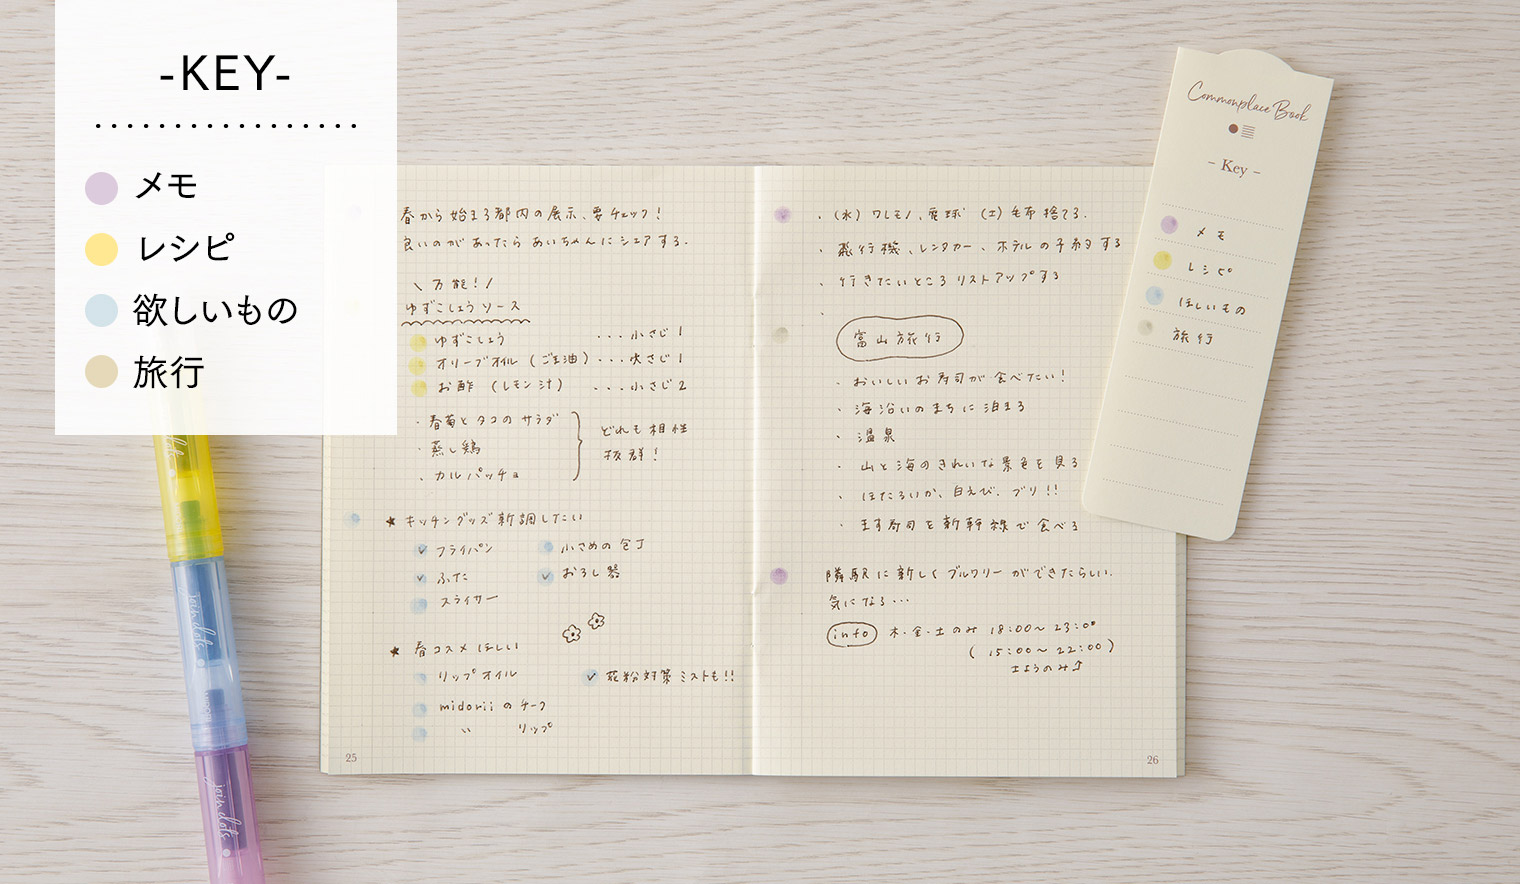 -KEY-
メモ
レシピ
欲しいもの
旅行
春から始まる都内の展示、要チェック!
良いのがあったら あいちゃんにシェアする.
\ 万能! /
ゆずこしょうソース
ゆずこしょう ...小さじ1
オリーブオイル (ごま油) ...大さじ1
お酢 (レモン汁) ...小さじ2
・春菊とタコのサラダ
・蒸し鶏
・カルパッチョ
どれも相性
抜群!
★ キッチングッズ新調したい
✓ フライパン 小さめの包丁
✓ ふた ✓ おろし器
スライサー
★ 春コスメほしい
リップオイル ✓ 花粉対策ミストも!!
midoriiのチーク
〃 リップ
25
・(水) ワレモノ、電球 (土) 毛布捨てる.
・飛行機、レンタカー、ホテルの予約する
・行きたいところリストアップする
・
富山旅行
・おいしいお寿司が食べたい!
・海沿いのまちに泊まる
・温泉
・山と海のきれいな景色を見る
・ほたるいか、白えび、ブリ!!
・ます寿司を新幹線で食べる
隣駅に新しくブルワリーができたらしい.
気になる...
info 木・金・土のみ 18:00〜23:00
(15:00〜22:00)
土ようのみ↑
26
Commonplace Book
- Key -
メモ
レシピ
ほしいもの
旅行
join dots
join dots